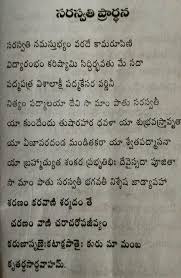 సరస్వతి ప్రార్థన
సరస్వతి నమస్తుభ్యం వరదే కామరూపిణి
విద్యారంభం కరిష్యామి సిద్ధిర్భవతు మే సదా
పద్మపత్ర విశాలాక్షీ పద్మకేసర వర్ణినీ
నిత్యం పద్మాలయా దేవి సా మాం పాతు సరస్వతీ
యా కుందేందు తుషారహార ధవళా యా శుభ్రవస్త్రావృతా
యా వీణావరదండ మండితకరా యా శ్వేతపద్మాసనా
యా బ్రహ్మాచ్యుత శంకర ప్రభృతిభిః దేవైస్సదా పూజితా
సా మాం పాతు సరస్వతీ భగవతీ నిశ్శేష జాడ్యాపహా
శరణం కరవాణి శర్మదం తే
చరణం వాణి చరాచరోపజీవ్యం
కరుణామసృణైః కటాక్షపాతైః కురు మా మంబ
కృతార్థసార్థవాహమ్.